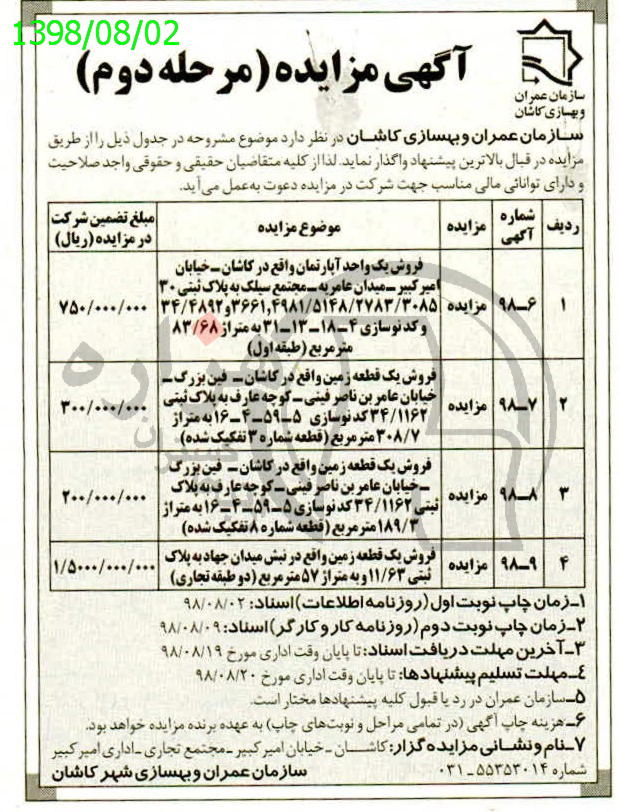 1398/08/02
آگهی مزایده (مرحله دوم)
سازمان عمران
و بهسازی کاشان
سازمان عمران و بهسازی کاشان در نظر دارد موضوع مشروحه در جدول ذیل را از طریق
مزایده در قبال بالاترین پیشنهاد واگذار نماید. لذا از کلیه متقاضیان حقیقی و حقوقی واجد صلاحیت
و دارای توانائی مالی مناسب جهت شرکت در مزایده دعوت به عمل می آید.
ردیف شماره آگهی مزایده موضوع مزایده مبلغ تضمین شرکت در مزایده (ریال)
۱ ۶-۹۸ مزایده فروش یک واحد آپارتمان واقع در کاشان - خیابان
امیرکبیر - میدان عامریه - مجتمع سیلک به پلاک ثبتی ۳۰
۳۴/۴۸۹۲و۳۶۶۱,۴۹۸۱/۵۱۴۸/۲۷۸۳/۳۰۸۵
و کد نوسازی ۴-۱۸-۱۳-۳۱ به متراژ ۸۳/۶۸
متر مربع (طبقه اول) ۷۵۰/۰۰۰/۰۰۰
۲ ۷-۹۸ مزایده فروش یک قطعه زمین واقع در کاشان - فین بزرگ -
خیابان عامر بن ناصر فینی - کوچه عارف به پلاک ثبتی
۳۴/۱۱۶۲ کد نوسازی ۵-۵۹-۴-۱۶ به متراژ
۳۰۸/۷ متر مربع (قطعه شماره ۳ تفکیک شده) ۳۰۰/۰۰۰/۰۰۰
۳ ۸-۹۸ مزایده فروش یک قطعه زمین واقع در کاشان - فین بزرگ
- خیابان عامر بن ناصر فینی - کوچه عارف به پلاک
ثبتی ۳۴/۱۱۶۲ کد نوسازی ۵-۵۹-۴-۱۶ به متراژ
۱۸۹/۳ متر مربع (قطعه شماره ۸ تفکیک شده) ۲۰۰/۰۰۰/۰۰۰
۴ ۹-۹۸ مزایده فروش یک قطعه زمین واقع در نبش میدان جهاد به پلاک
ثبتی ۱۱/۶۳ و به متراژ ۵۷ متر مربع (دو طبقه تجاری) ۱/۵۰۰۰/۰۰۰/۰۰۰
۱-زمان چاپ نوبت اول (روزنامه اطلاعات) اسناد: ۹۸/۰۸/۰۲
۲-زمان چاپ نوبت دوم (روزنامه کار و کارگر) اسناد: ۹۸/۰۸/۰۹
۳-آخرین مهلت دریافت اسناد: تا پایان وقت اداری مورخ ۹۸/۰۸/۱۹
۴-مهلت تسلیم پیشنهادها: تا پایان وقت اداری مورخ ۹۸/۰۸/۲۰
۵-سازمان عمران در رد یا قبول کلیه پیشنهادها مختار است.
۶-هزینه چاپ آگهی (در تمامی مراحل و نوبت های چاپ) به عهده برنده مزایده خواهد بود.
۷-نام و نشانی مزایده گزار: کاشان - خیابان امیرکبیر - مجتمع تجاری - اداری امیرکبیر
شماره ۵۵۳۵۳۰۱۴-۰۳۱
سازمان عمران و بهسازی شهر کاشان
هزاره